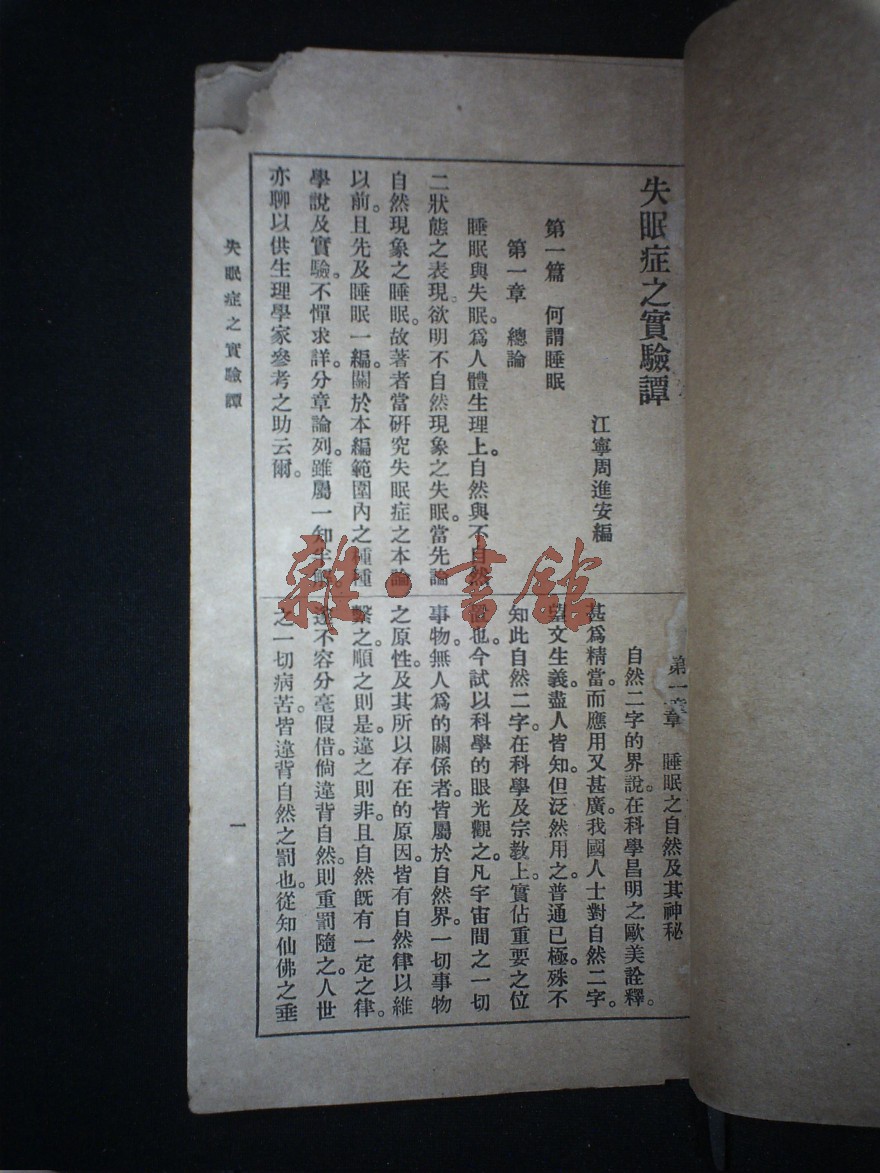 失眠症之實驗譚
江寧周進安編
第一篇　何謂睡眠
第一章　總論
睡眠與失眠。爲人體生理上。自然與不自然
二狀態之表現。欲明不自然現象之失眠。當先論
自然現象之睡眠。故著者當研究失眠症之本論
以前。且先及睡眠一編。關於本編範圍內之種種
學說及實驗。不憚求詳。分章論列。雖屬一知半解。
亦聊以供生理學家參考之助云爾。
第二章　睡眠之自然及其神秘
自然二字的界說。在科學昌明之歐美詮釋。
甚爲精當。而應用又甚廣。我國人士對自然二字。
望文生義。盡人皆知。但泛然用之。普通已極。殊不
知此自然二字。在科學及宗教上。實佔重要之位
置也。今試以科學的眼光觀之。凡宇宙間之一切
事物。無人爲的關係者。皆屬於自然界。一切事物
之原性。及其所以存在的原因。皆有自然律以維
繫之。順之則是。違之則非。且自然旣有一定之律。
遂不容分毫假借。倘違背自然。則重罰隨之。人世
之一切病苦。皆違背自然之罰也。從知仙佛之垂
失眠症之實驗譚
一
雜·書館